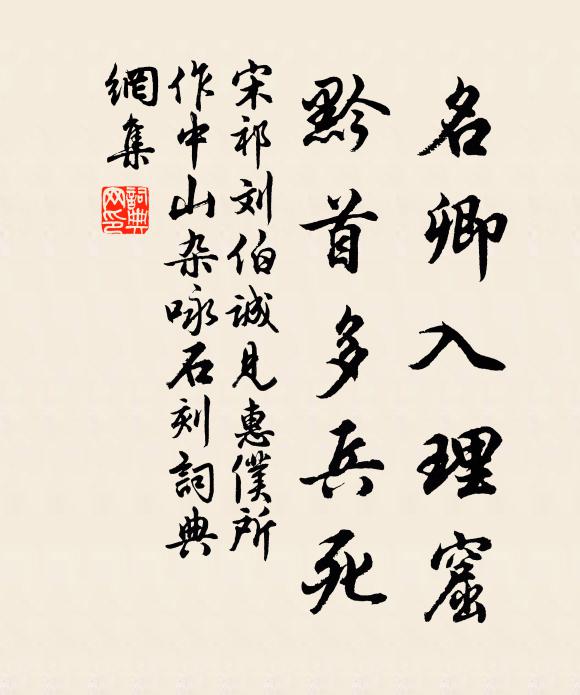 名卿入理窟
黔首多兵死
宋祁刘伯诚见惠僕所
作中山杂咏石刻詞典
網集
詞典
网印